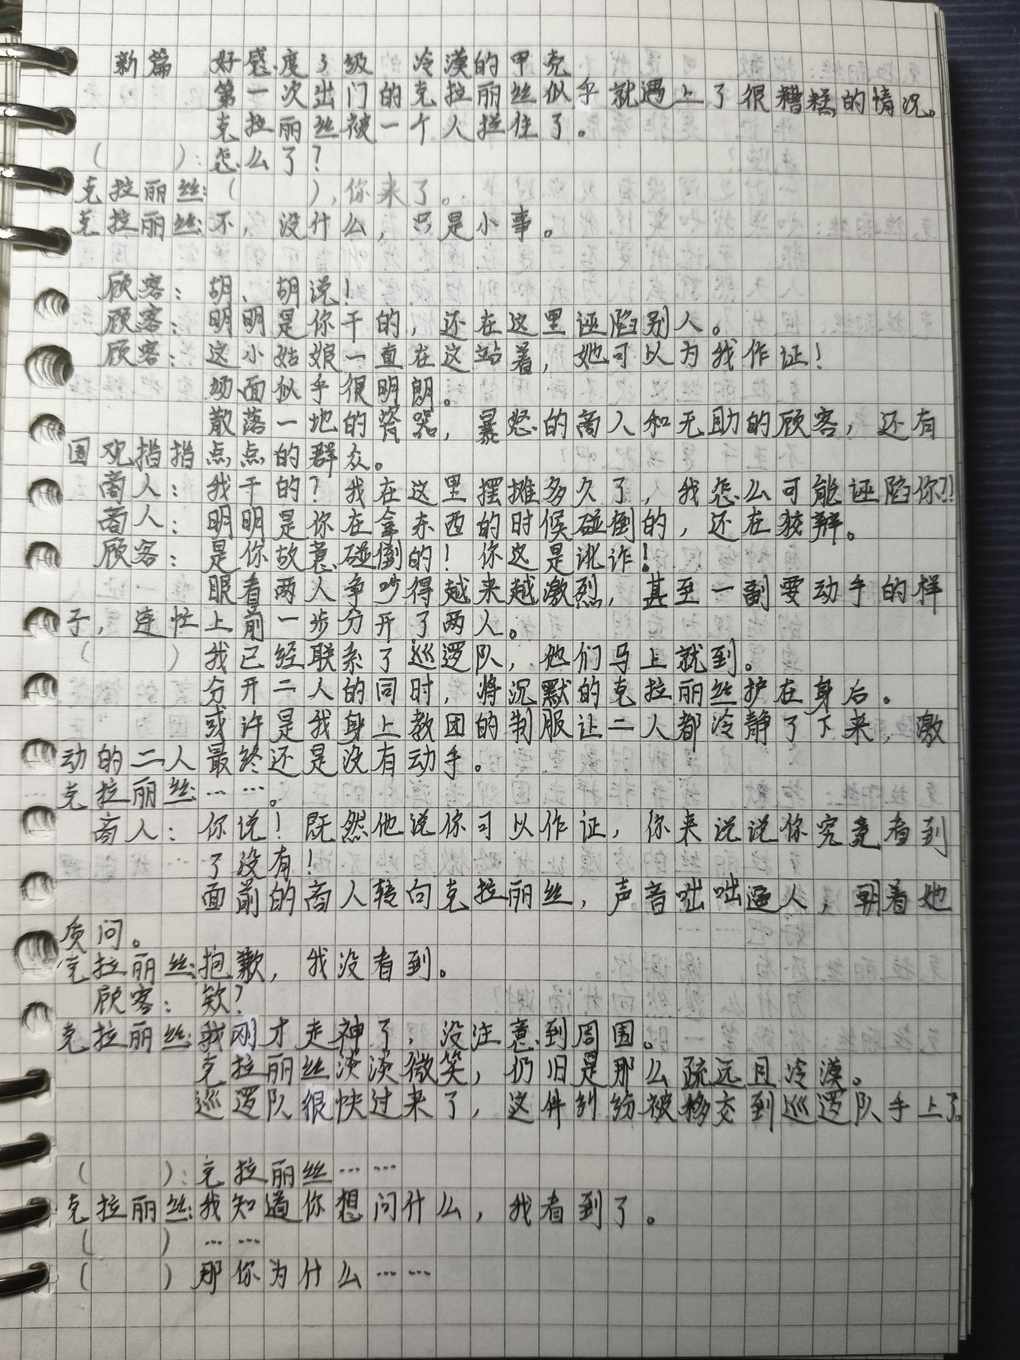 新篇 好感度3级 冷漠的甲壳
第一次出门的克拉丽丝似乎就遇上了很糟糕的情况。
克拉丽丝被一个人拉住了。
( ):怎么了?
克拉丽丝:( ),你来了。
克拉丽丝:不,没什么,只是小事。
顾客:胡、胡说!
顾客:明明是你干的,还在这里诬陷别人。
顾客:这小姑娘一直在这站着,她可以为我作证!
场面似乎很明朗。
散落一地的瓷器,暴怒的商人和无助的顾客,还有
围观指指点点的群众。
商人:我干的?我在这里摆摊多久了,我怎么可能诬陷你?!
商人:明明是你在拿东西的时候碰倒的,还在狡辩。
顾客:是你故意碰倒的!你这是讹诈!
眼看两人争吵得越来越激烈,甚至一副要动手的样
子,连忙上前一步分开了两人。
( )我已经联系了巡逻队,他们马上就到。
分开二人的同时,将沉默的克拉丽丝护在身后。
或许是我身上教团的制服让二人都冷静了下来,激
动的二人最终还是没有动手。
克拉丽丝:……。
商人:你说!既然他说你可以作证,你来说说你究竟看到
了没有!
面前的商人转向克拉丽丝,声音咄咄逼人,朝着她
质问。
克拉丽丝:抱歉,我没看到。
顾客:欸?
克拉丽丝:我刚才走神了,没注意到周围。
克拉丽丝淡淡微笑,仍旧是那么疏远且冷漠。
巡逻队很快过来了,这件纠纷被移交到巡逻队手上了。
( ):克拉丽丝……
克拉丽丝:我知道你想问什么,我看到了。
( )……
( )那你为什么……